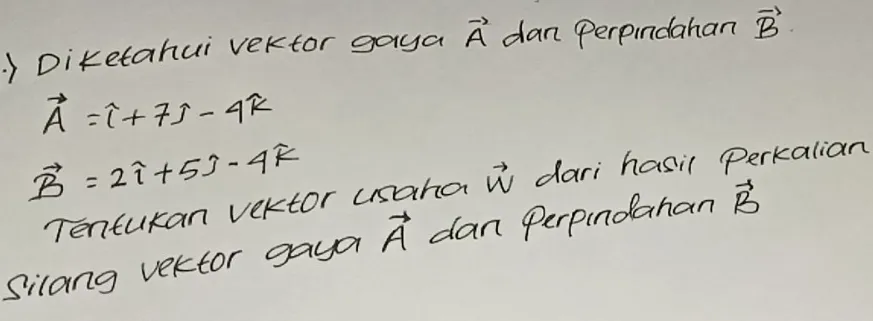 .) Diketahui vektor gaya A⃗ dan Perpindahan B⃗.
A⃗ = î + 7ĵ - 4k̂
B⃗ = 2î + 5ĵ - 4k̂
Tentukan vektor usaha W⃗ dari hasil Perkalian
Silang vektor gaya A⃗ dan Perpindahan B⃗